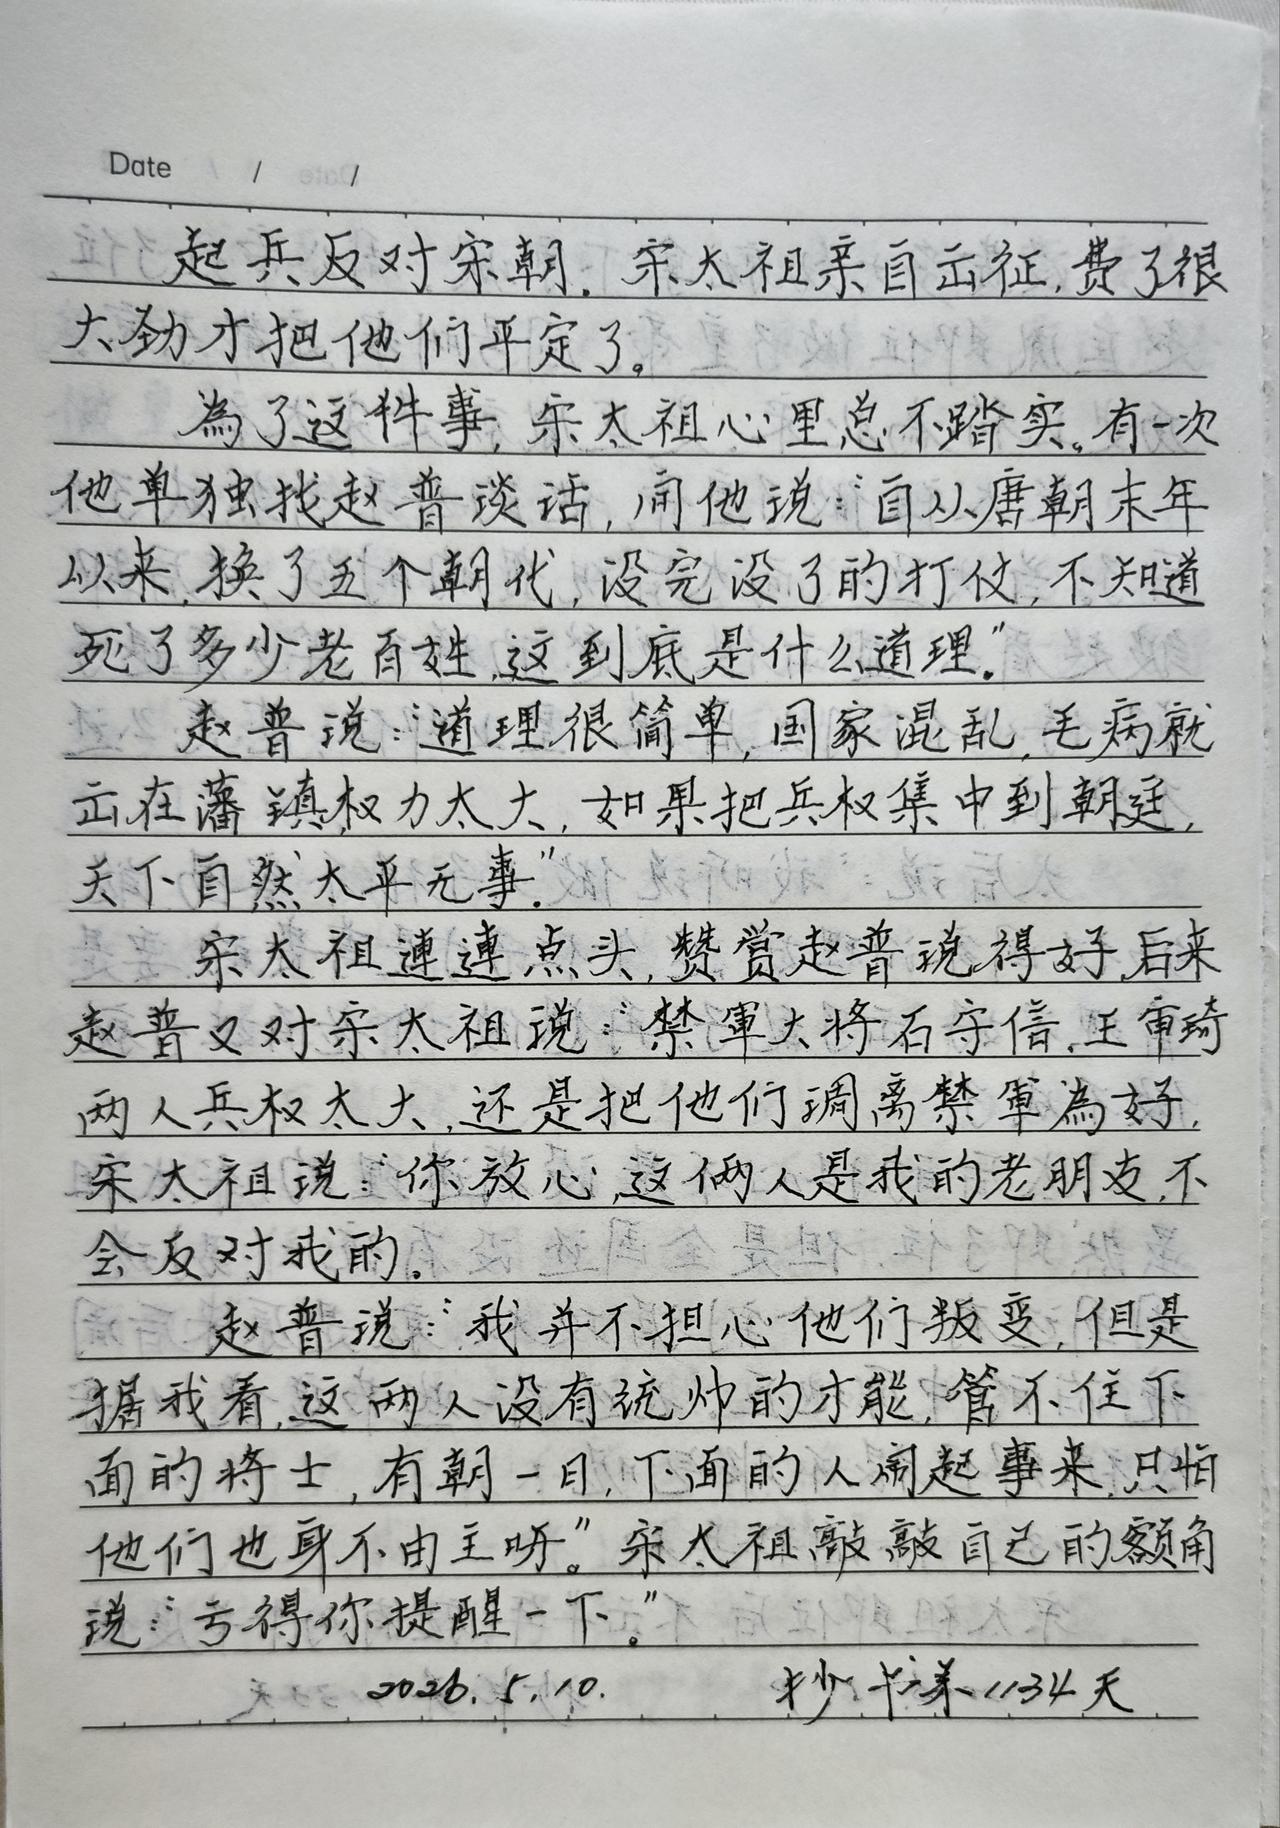 Date / /
起兵反对宋朝. 宋太祖亲自出征,费了很
大劲才把他们平定了。
為了这件事,宋太祖心里总不踏实。有一次
他单独找赵普谈话,问他说:“自从唐朝末年
以来,换了五个朝代,没完没了的打仗,不知道
死了多少老百姓,这到底是什么道理."
赵普说:“道理很简单,国家混乱,毛病就
出在藩镇权力太大,如果把兵权集中到朝廷,
天下自然太平无事."
宋太祖連連点头,赞赏赵普说得好,后来
赵普又对宋太祖说:“禁軍大将石守信.王审琦
两人兵权太大,还是把他们调离禁軍為好,
宋太祖说:“你放心,这俩人是我的老朋友,不
会反对我的。
赵普说:“我并不担心他们叛变,但是
据我看,这两人没有统帅的才能,管不住下
面的将士,有朝一日,下面的人闹起事来,只怕
他们也身不由主呀。” 宋太祖敲敲自己的额角
说:“亏得你提醒一下。”
2026.5.10. 抄书第1134天